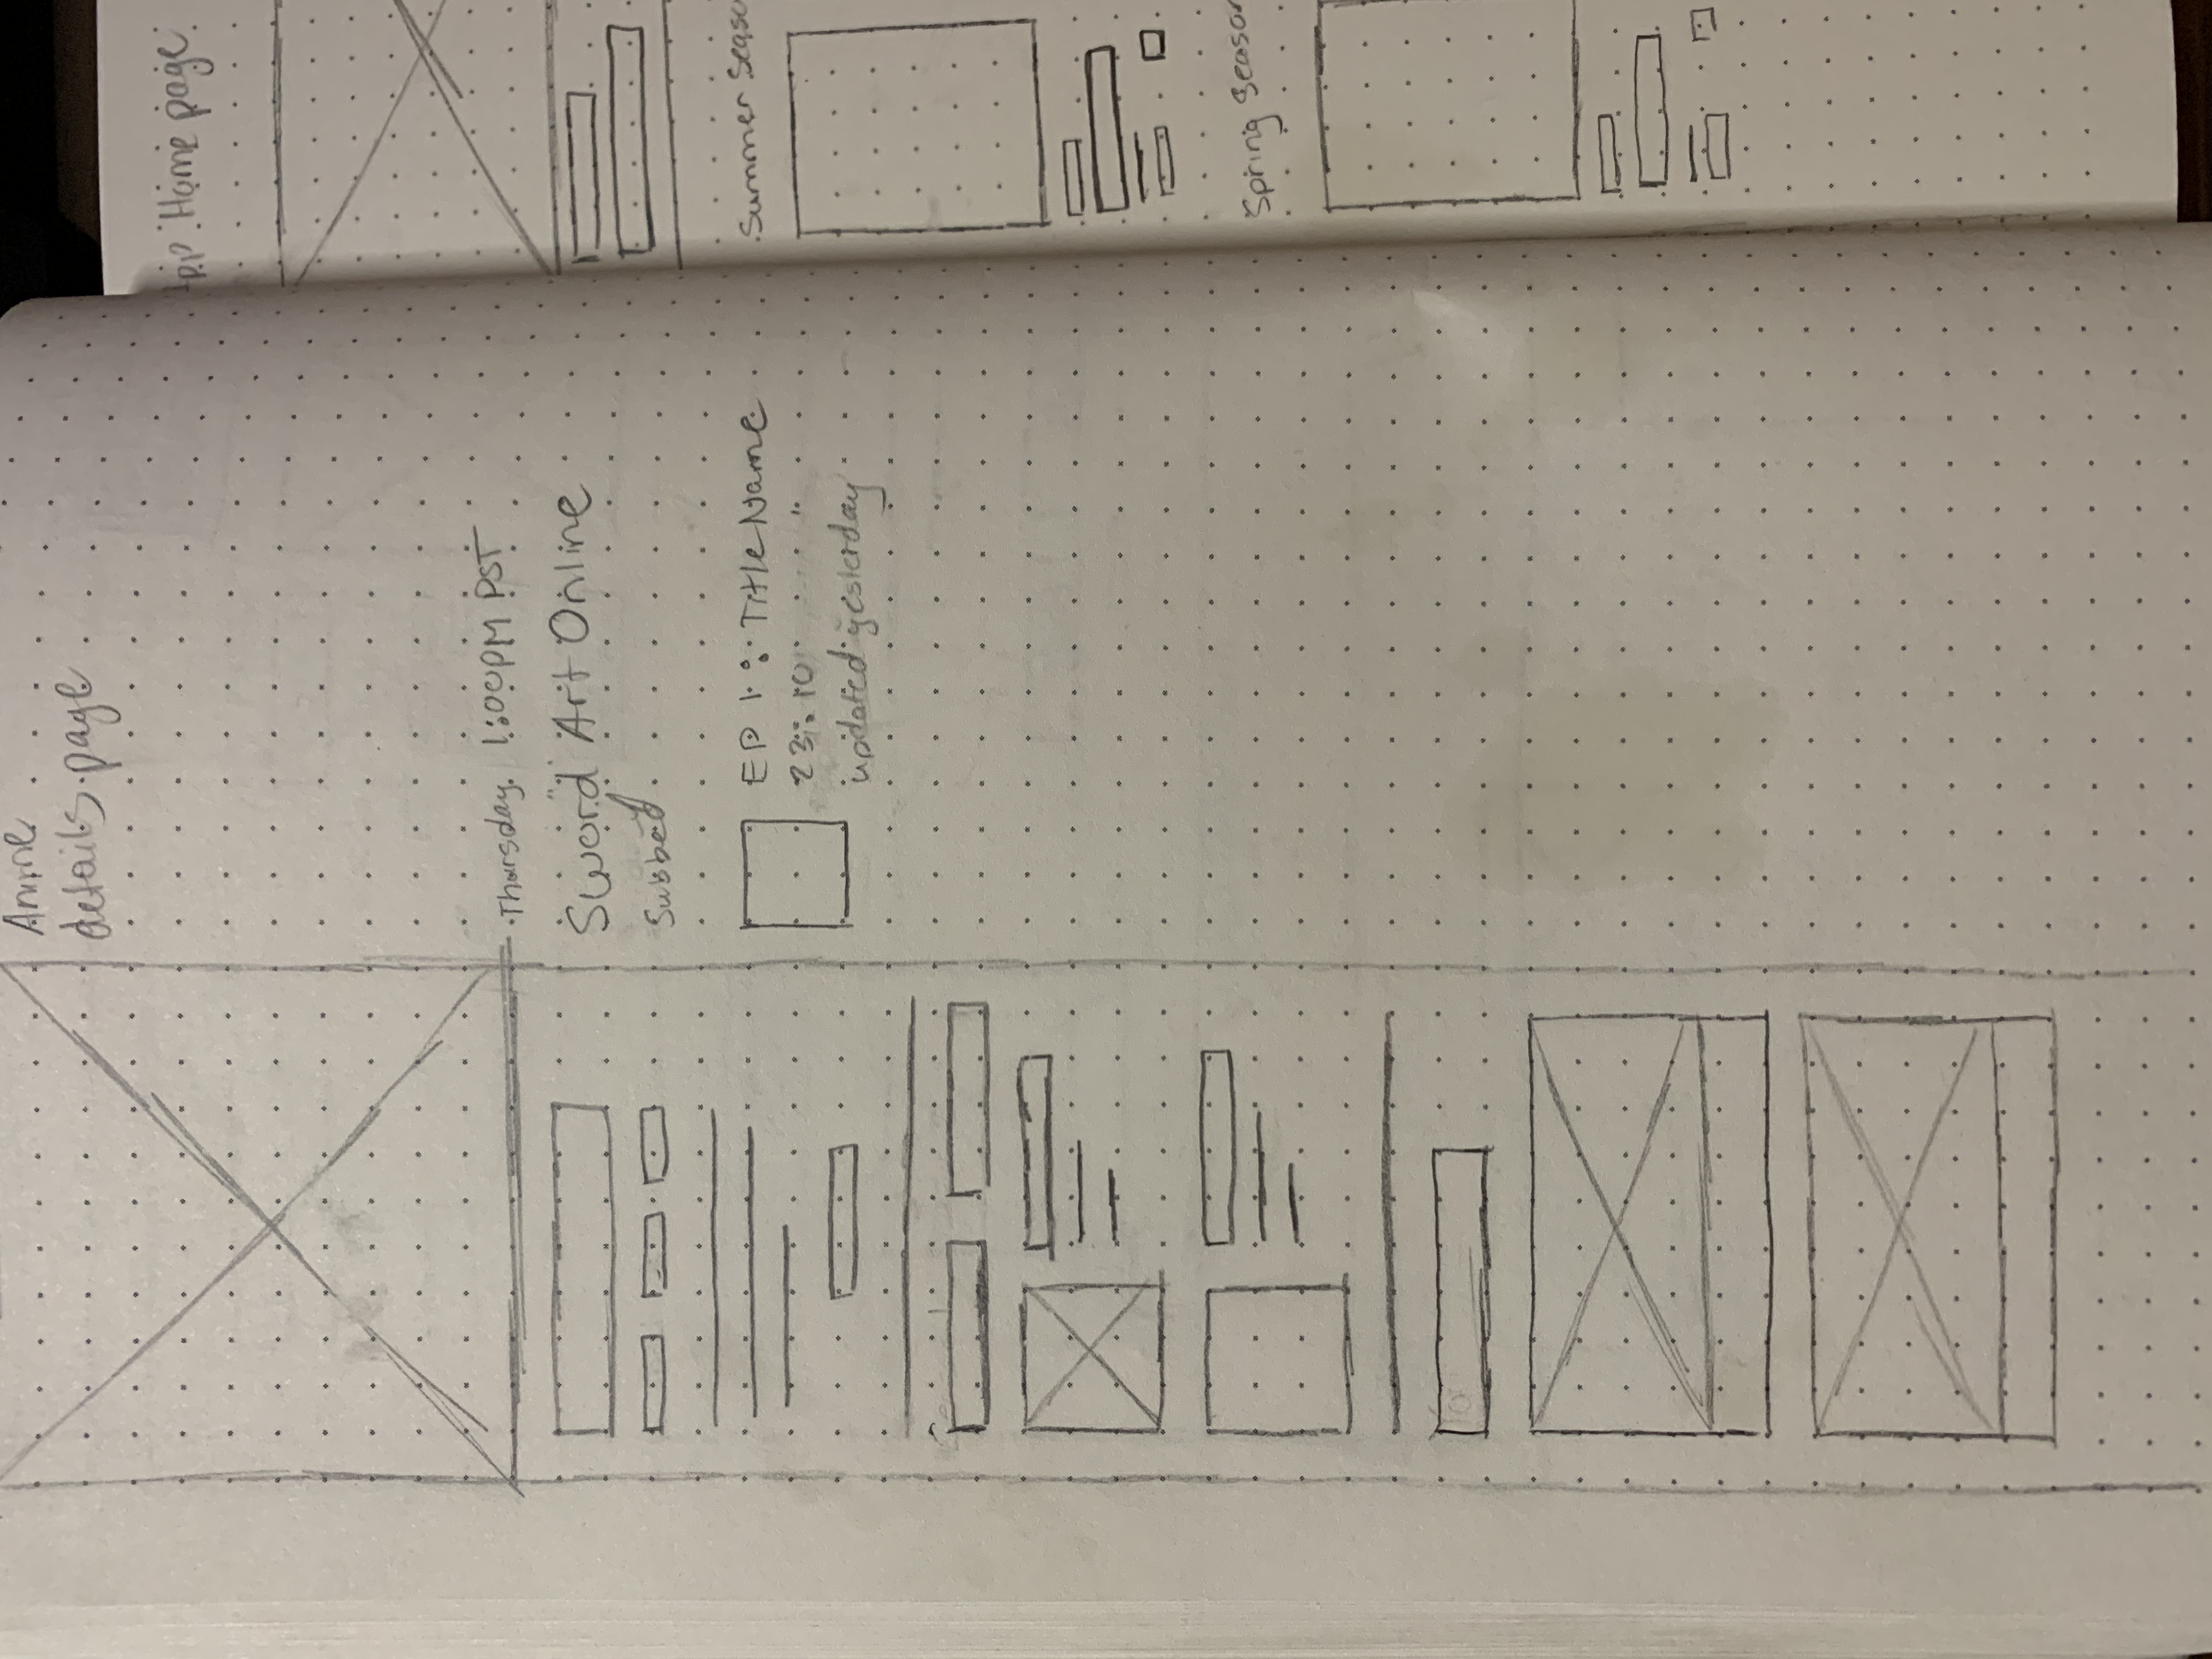 Anime
details page
Thursday 1:00PM PST
Sword Art Online
Subbed
EP 1: Title Name
23:10
updated yesterday
Home page
Summer Seaso
Spring Season